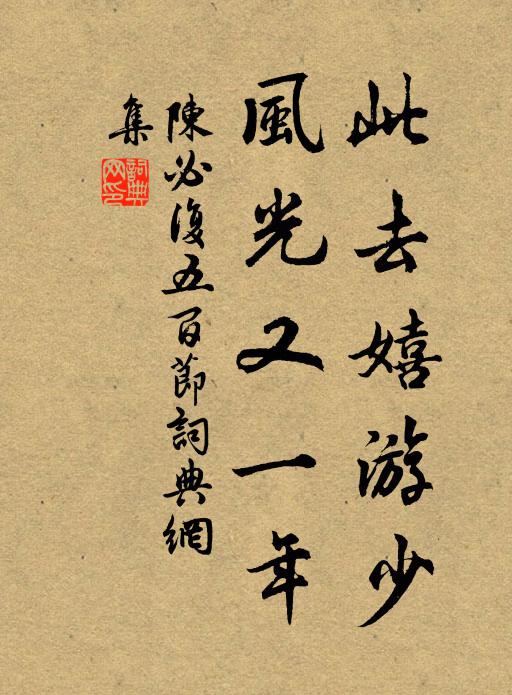 此去嬉游少
風光又一年
陳必復五百節詞典網
集
詞典
网印